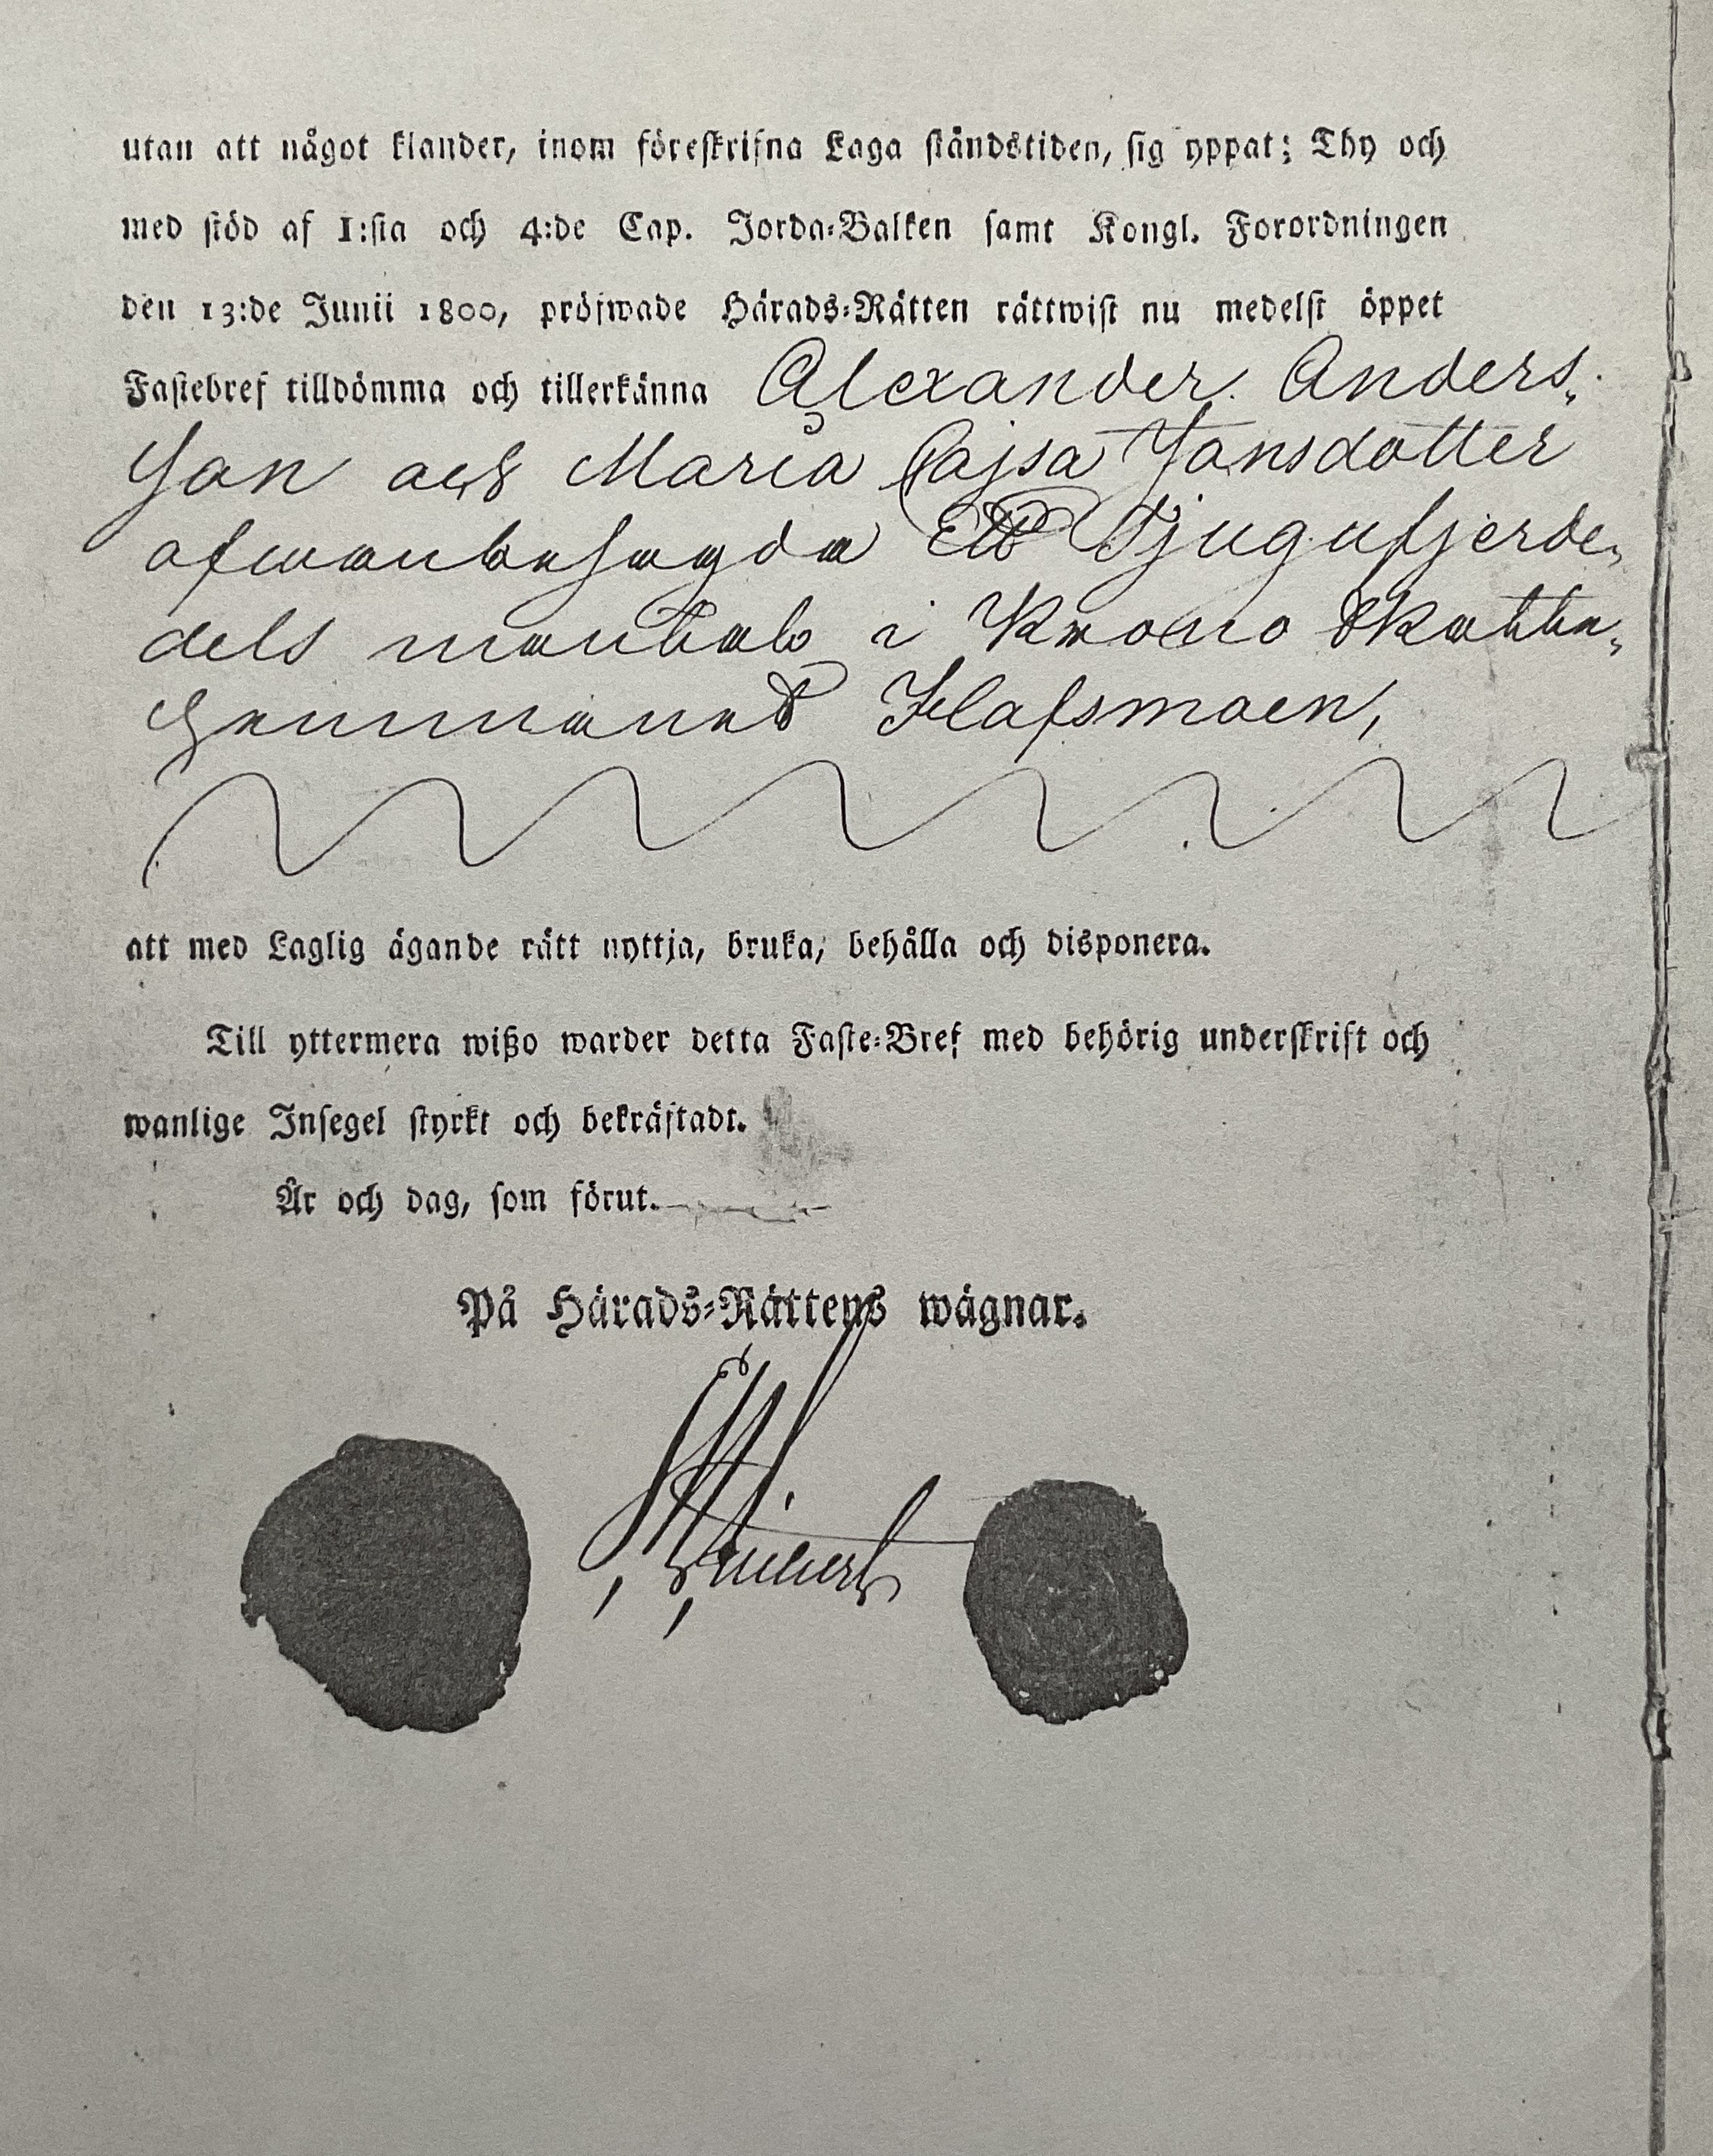 utan att något klander, inom föreskrifna Laga ståndstiden, sig yppat; Thy och
med stöd af 1:sta och 4:de Cap. Jorda-Balken samt Kongl. Forordningen
den 13:de Junii 1800, pröfwade Härads-Rätten rättwist nu medelst öppet
Fastebref tilldömma och tillerkänna Alexander Anders-
son och Maria Cajsa Jansdotter
ofwanbesagda Ett Tjugufjerde-
dels mantal i Krono Skatte-
hemmanet
att med Laglig ägande rätt nyttja, bruka, behålla och disponera.
Till yttermera wißo warder detta Faste-Bref med behörig underskrift och
wanlige Insegel styrkt och bekräftadt.
År och dag, som förut.
På Härads-Rättens wägnar.